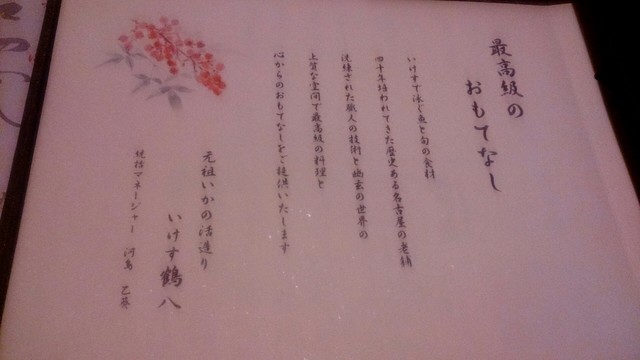 最高級の
おもてなし
いけすで泳ぐ魚と旬の食材
四十年培われてきた歴史ある名古屋の老舗
洗練された職人の技術と幽玄の世界の
上質な空間で最高級の料理と
心からのおもてなしをご提供いたします
元祖いかの活造り
いけす鶴八
統括マネージャー